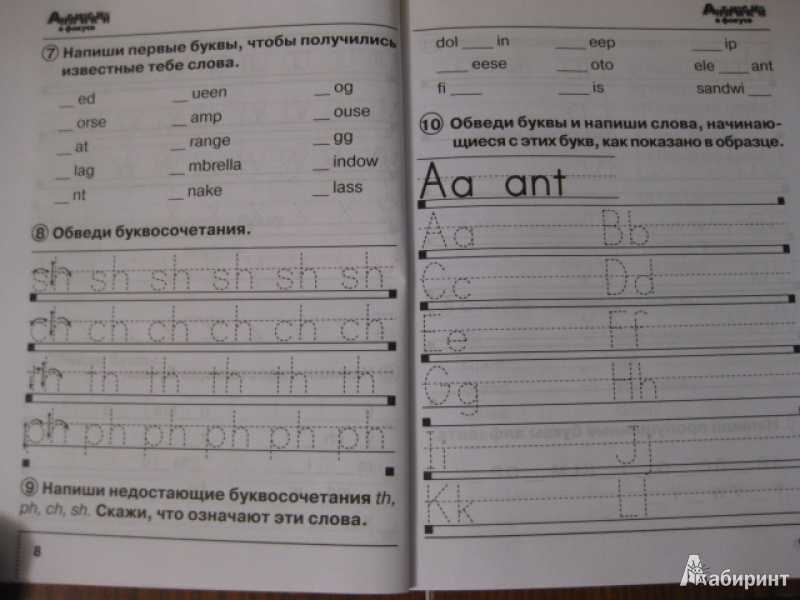 Английский
в фокусе
7 Напиши первые буквы, чтобы получились
известные тебе слова.
__ ed __ ueen __ og
__ orse __ amp __ ouse
__ at __ range __ gg
__ lag __ mbrella __ indow
__ nt __ nake __ lass
8 Обведи буквосочетания.
sh sh sh sh sh sh
ch ch ch ch ch ch
th th th th th th
ph ph ph ph ph ph
9 Напиши недостающие буквосочетания th,
ph, ch, sh. Скажи, что означают эти слова.
8
Английский
в фокусе
dol ____ in ____ eep ____ ip
____ eese ____ oto ele ____ ant
fi ____ ____ is sandwi ____
10 Обведи буквы и напиши слова, начинаю-
щиеся с этих букв, как показано в образце.
Aa ant
Aa Bb
Cc Dd
Ee Ff
Gg Hh
Ii Jj
Kk Ll
Лабиринт